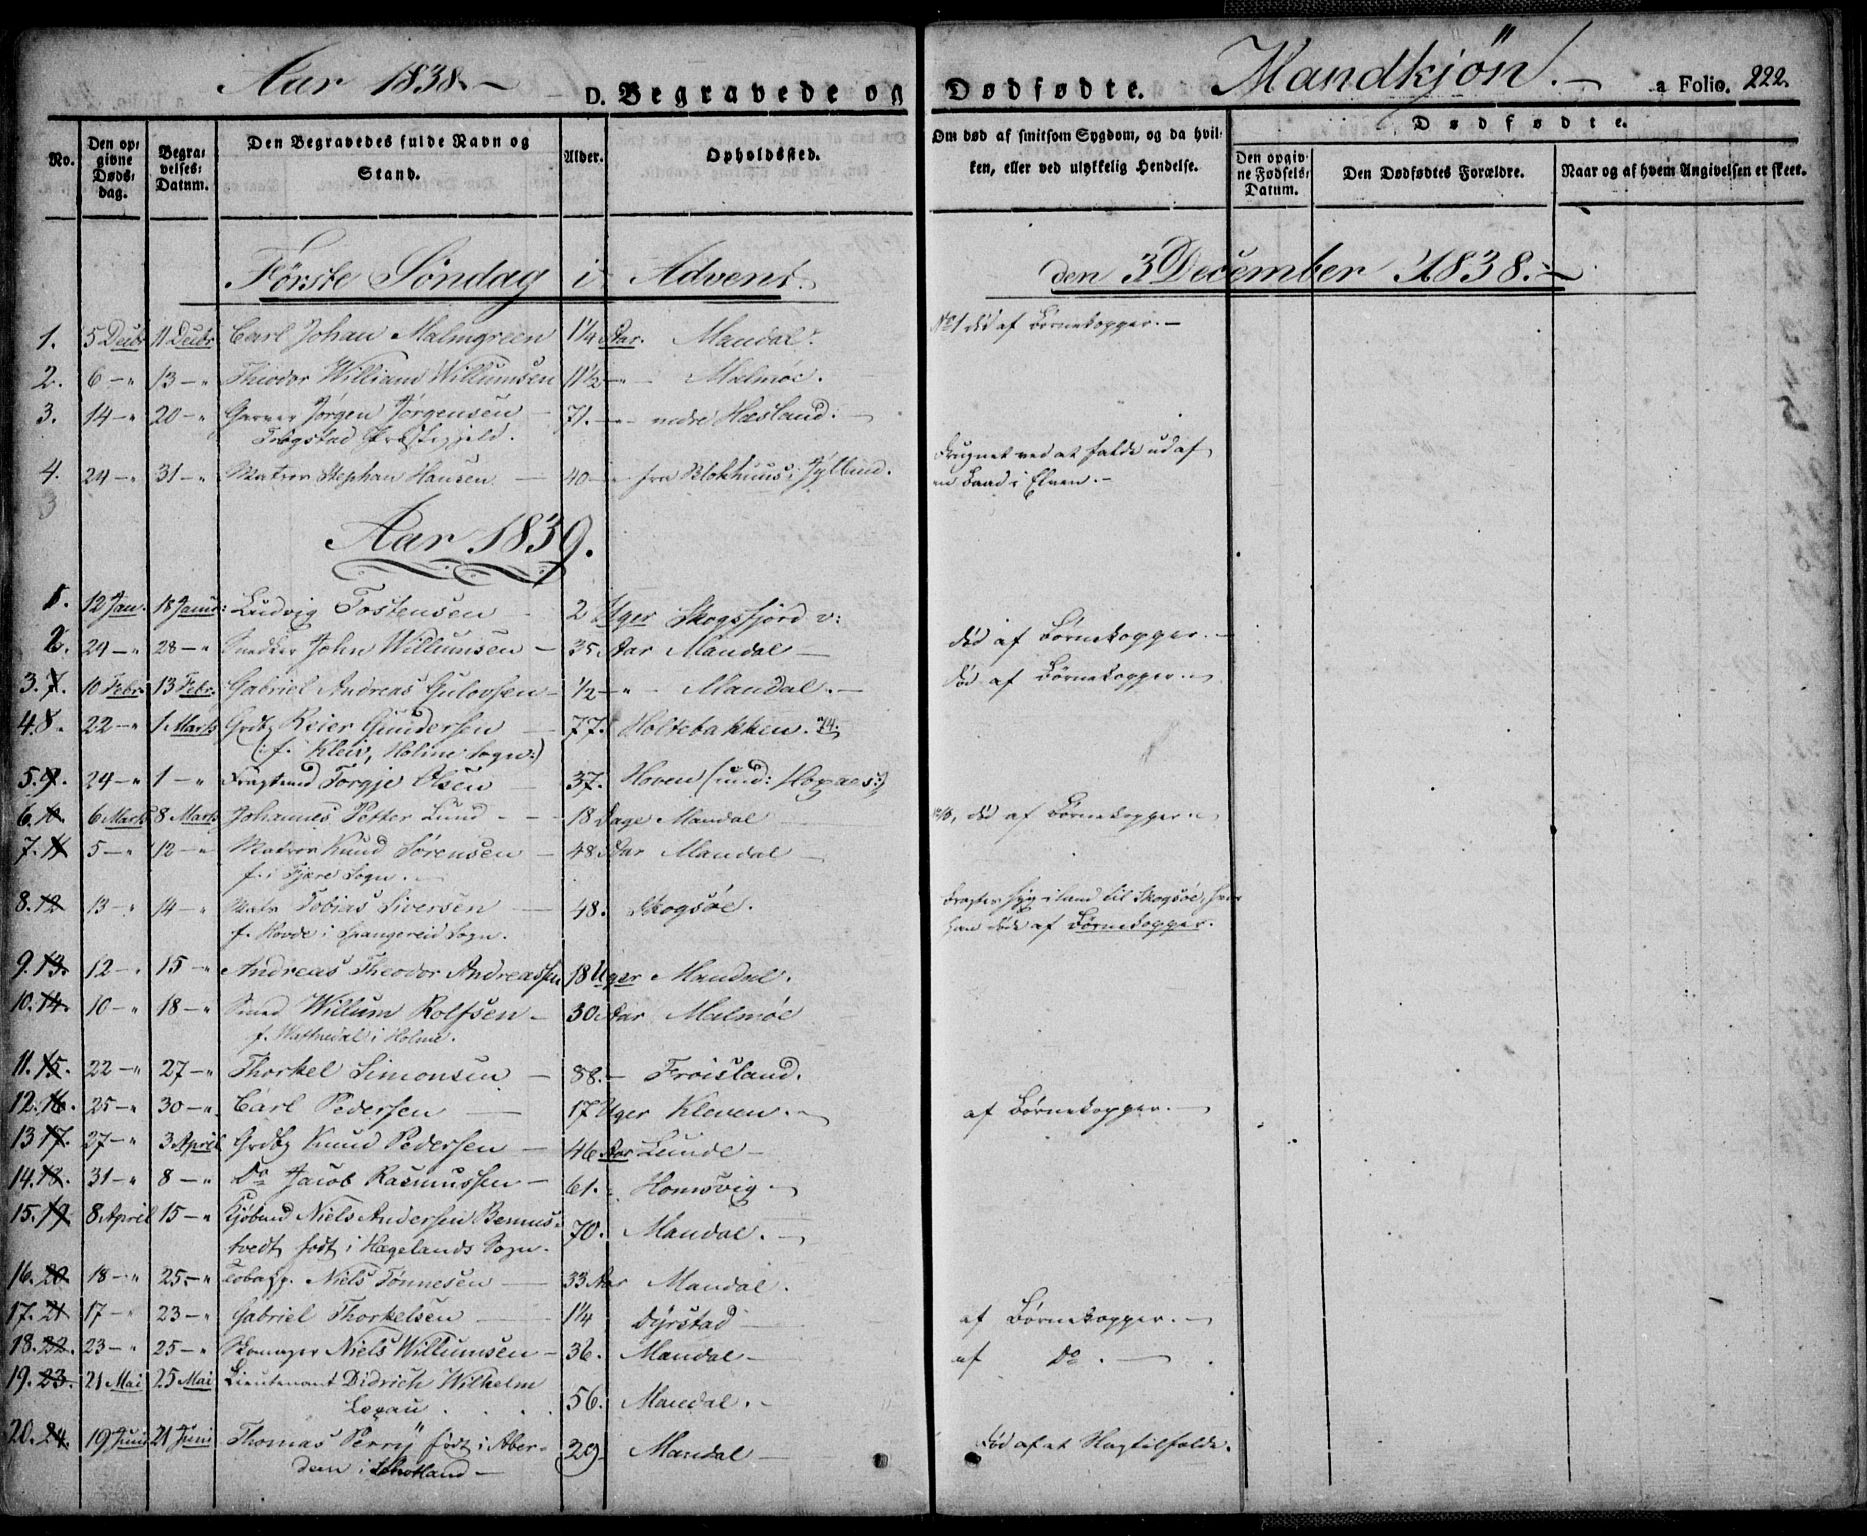 Aar 1838.
D. Begravede og Dødfødte. Mandkjøn. a Folio. 222.
No. Den opgivne Dødsdag. Begravelses-Datum. Den Begravedes fulde Navn og Stand. Alder. Opholdssted. Om død af smitsom Sygdom, og da hvilken, eller ved ulykkelig Hendelse. Dødfødte.
Den opgivne Fødsels-Datum. Den Dødfødtes Forældre. Naar og af hvem Angivelsen er skeet.
Første Søndag i Advent. den 3 December 1838.
1. 5 Decbr 11 Decbr Carl Johan Malmgreen 1 1/4 Aar. Mandal. No 1 død af Børnekopper.
2. 6 — " 13 — " Theodor William Willumsen 11 1/2 — Malmöe.
3. 14 — " 20 — " Garver Jørgen Jørgensen 71. — nedre Hæsland.
Trøgstad Præstegjeld.
4. 24 — " 31 — " Matros Stephan Hansen 40 — fra Blokhuus i Jylland. Druknet ved at falde ud af
en Baad i Elven.
Aar 1839.
1. 12 Jan. 18 Janr: Ludvig Tostensen 2 Uger Skogsfjord v:
2. 24 — " 28 — " Snedker John Willumsen 35 Aar Mandal død af Børnekopper.
3. 7. 10 Febr. 13 Febr. Gabriel Andreas Gulovsen 1/2 — " Mandal. død af Børnekopper.
4. 8. 22 — " 1 Marts Grdbr Reier Gundersen 77. Holtebakken.
(: f. Kleiv, Holme Sogn:)
5. 9. 24 — " 1 — " Torgje Olsen 37. Hoven (und:
6. 10. 6 Marts 8 Marts Johannes Petter Lund 18 Dage Mandal død af Børnekopper.
7. 11 5 — " 12 — " Matros Knud Sørensen 48 Aar Mandal
f. i Fjære Sogn.
8. 12 13 — " 14 — " Matr Tobias Siversen 48. Skogsøe. syg i land til Skogsøe, hvor
f. Hovde i Spangereid Sogn. han døde af Børnekopper.
9. 13. 12 — " 15 — " Andreas Theodor Andreassen 18 Uger Mandal.
10. 14. 10 — " 18 — " Smed Willum Rolfsen 30 Aar Malmöe
f. i Holme.
11. 15. 22 — " 27 — " Thorkel Simonsen 88. — Frøisland.
12. 16. 25 — " 30 — " Carl Pedersen 17 Uger Kleven. af Børnekopper.
13 17. 27 — " 3 April Grdbr Knud Pedersen 46 Aar Lunde
14. 18. 31 — " 8 — " Do Jacob Rasmussen 61. Homsvig
15. 19. 8 April 15 — " Kjøbmd Niels Andersen Bennes-
tvedt født i Hægelands Sogn. 70. Mandal.
16. 20. 18 — " 25. — " Niels Tønnesen 33 Aar Mandal.
17. 21 17 — " 23 — " Gabriel Thorkelsen 1 1/4 Dyrstad af Børnekopper.
18. 22. 23 — " 25 — " Skomager Niels Willumsen 36. Mandal af Do.
19. 23. 21 Mai 25 Mai Lieutenant Didrich Wilhelm
Logau 56. Mandal.
20. 24. 19 Juni 21 Juni Thomas Perry født i Aber-
deen i Skotland 29 Mandal Død af et Slagtilfælde.